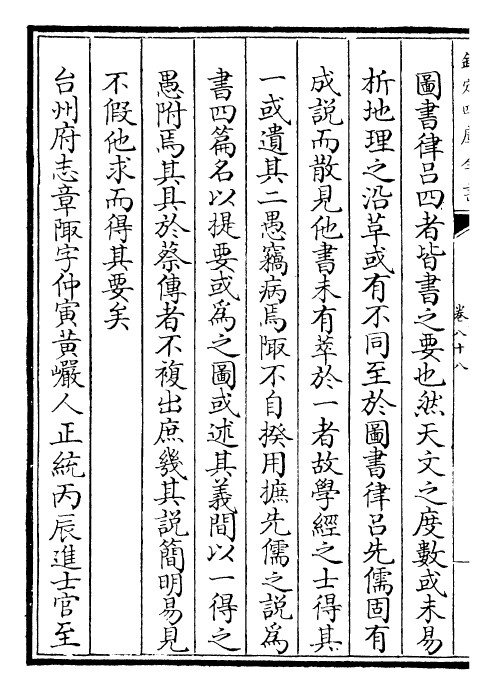 欽定四庫全書
卷八十八
圖書律呂四者皆書之要也然天文之度數或未易
析地理之沿革或有不同至於圖書律呂先儒固有
成説而散見他書未有萃於一者故學經之士得其
一或遺其二愚竊病焉陬不自揆用摭先儒之説為
書四篇名以提要或為之圖或述其義間以一得之
愚附焉其具於蔡傳者不複出庶幾其説簡明易見
不假他求而得其要矣
台州府志章陬字仲寅黄巖人正統丙辰進士官至